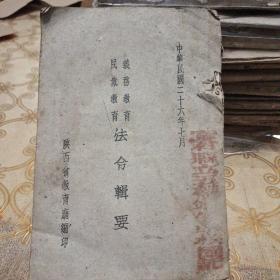 中華民國二十六年七月
義務教育
民眾教育
法令輯要
陝西省教育廳編印